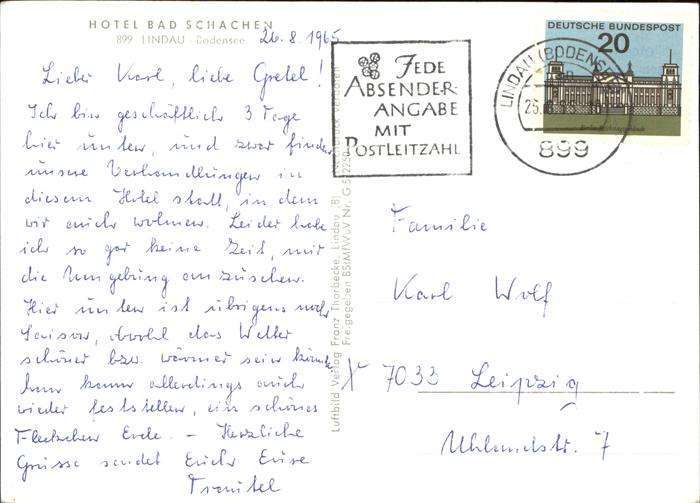 HOTEL BAD SCHACHEN
899 LINDAU - Bodensee
26.8.1965
Lieber Karl, liebe Gretel!
Ich bin geschäftlich 3 Tage
hier unten, und zwar finden
unsere Verhandlungen in
diesem Hotel statt, in dem
wir auch wohnen. Leider habe
ich so gar keine Zeit, mir
die Umgebung anzusehen.
Hier unten ist übrigens noch
Saison, obwohl das Wetter
schöner bzw. wärmer sein könnte
kann allerdings auch
wieder feststellen, ein schönes
Fleckchen Erde. - Herzliche
Grüsse sendet Euch Eure
Luftbild Verlag Franz Thorbecke, Lindau, Bl
Freigegeben BStMfWuV Nr. G
JEDE
ABSENDER-
ANGABE
MIT
POSTLEITZAHL
DEUTSCHE BUNDESPOST
20
LINDAU (BODENSEE)
899
Familie
Karl Wolf
X 7033 Leipzig
Uhlandstr. 7